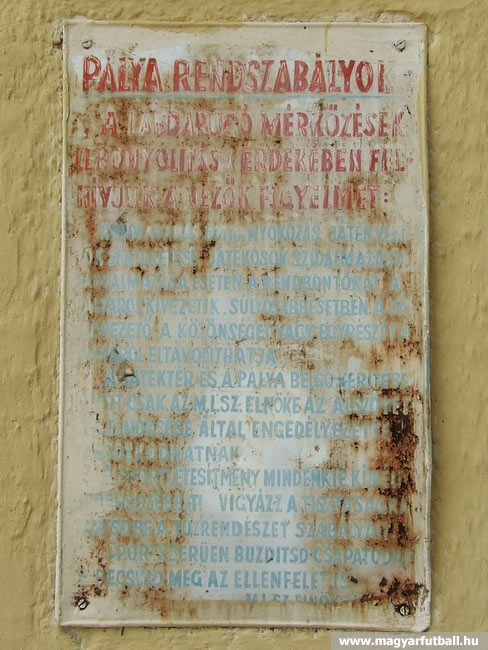 PÁLYA RENDSZABÁLYOK
A LABDARUGÓ MÉRKŐZÉSEK
LEBONYOLITÁSA ÉRDEKÉBEN FEL-
HIVJUK A NÉZŐK FIGYELMÉT:
JÁTÉKVEZE-
JÁTÉKOSOK SZIDALMAZÁSA
ESETÉN A RENDBONTÓKAT A
KIVEZETIK. SÚLYOSABB ESETBEN A
A KÖZÖNSÉGET VAGY EGY RÉSZÉT A
ELTÁVOLITHATJA.
A JÁTÉKTÉR ÉS A PÁLYA BELSŐ KERITÉSE
CSAK AZ M.L.SZ. ELNÖKE AZ
ELNÖKSÉGE ÁLTAL ENGEDÉLYEZETT
MINDENKIÉ
VIGYÁZZ A TISZTASÁGRA
BE A TŰZRENDÉSZET SZABÁLYAIT
SPORTSZERŰEN BUZDITSD CSAPATODAT
BECSÜLD MEG AZ ELLENFELET IS
M.L.SZ. ELNÖKSÉGE
www.magyarfutball.hu